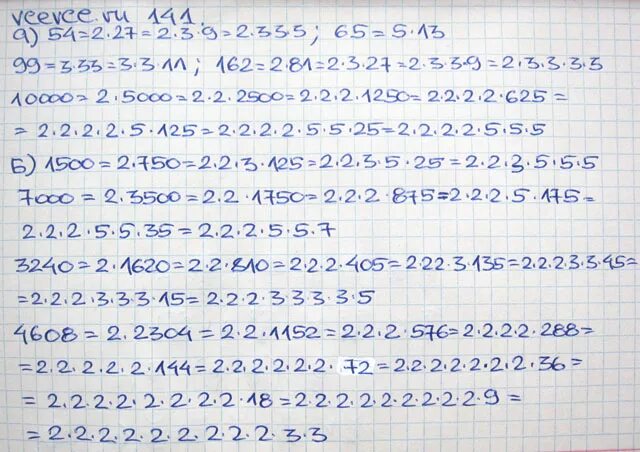 veevee.ru 141.
а) 54=2·27=2·3·9=2·3·3·5; 65=5·13
99=3·33=3·3·11; 162=2·81=2·3·27=2·3·3·9=2·3·3·3·3
10000=2·5000=2·2·2500=2·2·2·1250=2·2·2·2·625=
=2·2·2·2·5·125=2·2·2·2·5·5·25=2·2·2·2·5·5·5
Б) 1500=2·750=2·2·3·125=2·2·3·5·25=2·2·3·5·5·5
7000=2·3500=2·2·1750=2·2·2·875=2·2·2·5·175=
2·2·2·5·5·35=2·2·2·5·5·7
3240=2·1620=2·2·810=2·2·2·405=2·2·2·3·135=2·2·2·3·3·45=
=2·2·2·3·3·3·15=2·2·2·3·3·3·3·5
4608=2·2304=2·2·1152=2·2·2·576=2·2·2·2·288=
=2·2·2·2·2·144=2·2·2·2·2·2·72=2·2·2·2·2·2·2·36=
=2·2·2·2·2·2·2·2·18=2·2·2·2·2·2·2·2·2·9=
=2·2·2·2·2·2·2·2·2·3·3